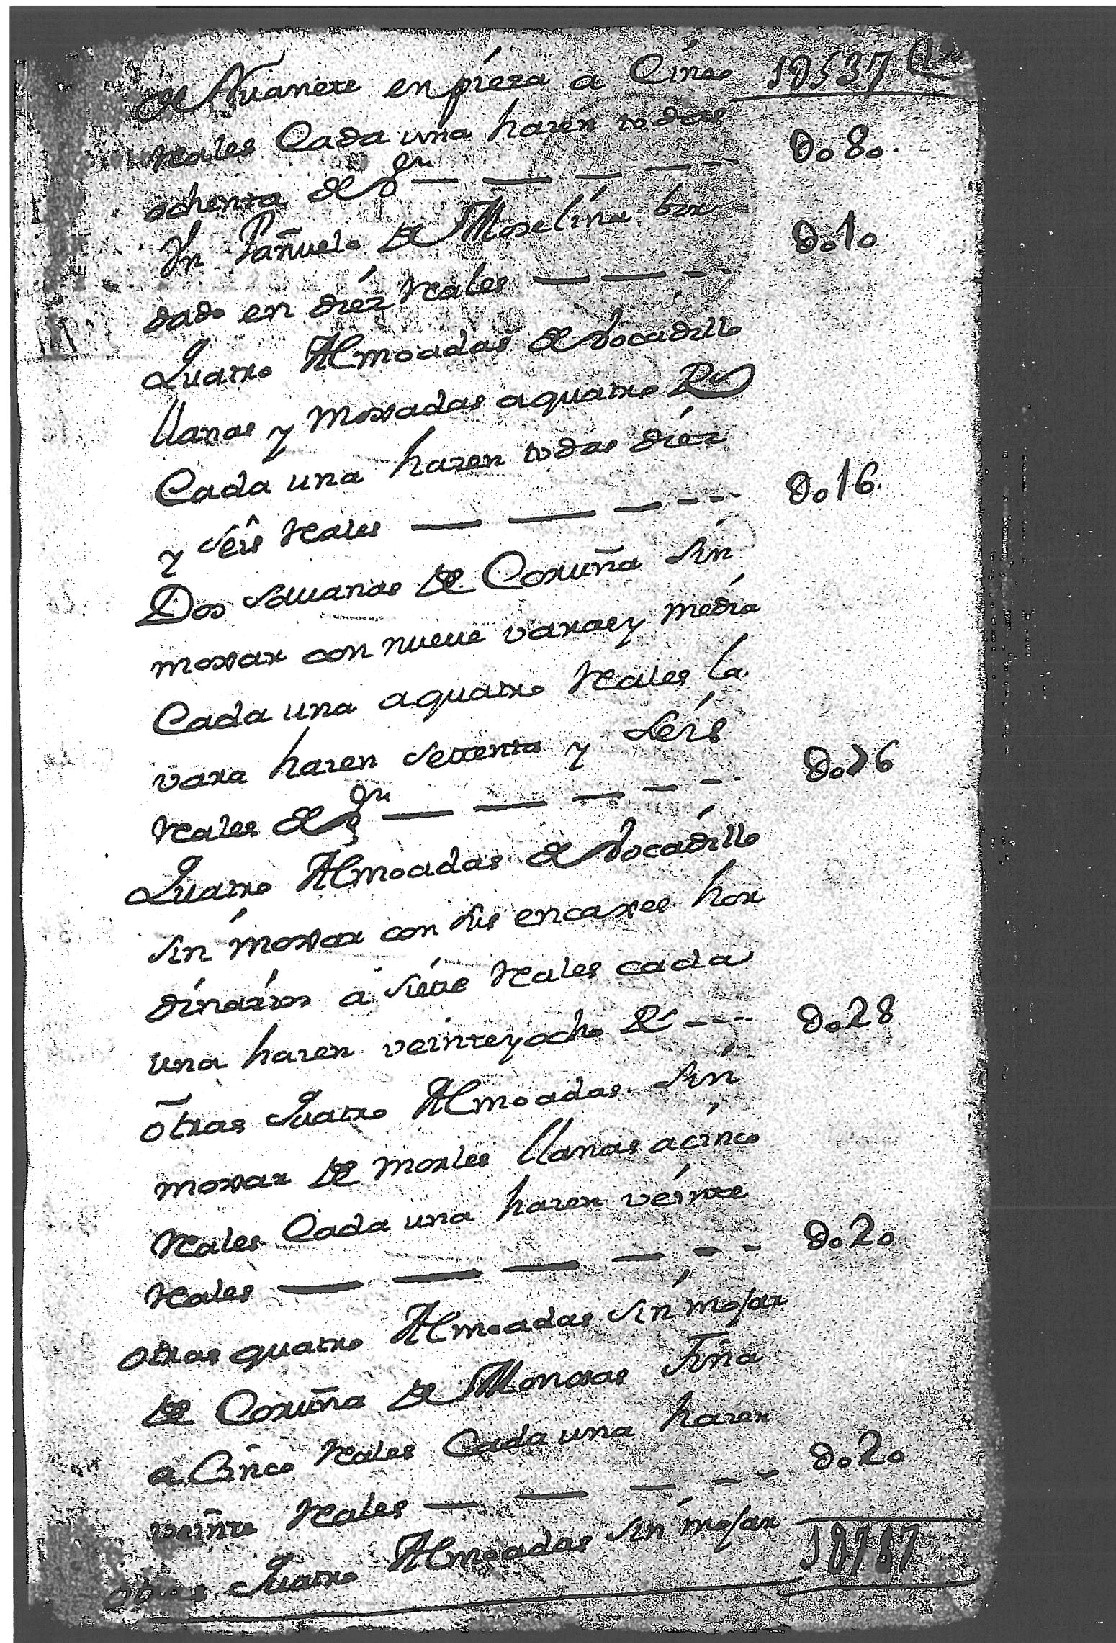 de Nuanete en pieza a Cinco 18537
Reales Cada una hazen todas
ochenta de Vn Do80.
Vn Pañuelo de Moselina bor
dado en diéz Reales Do10
Quatro Almoadas de bocadillo
llanas y Moxadas a quatro Rs
Cada una hazen todas diéz
y seis Reales Do16.
Dos savanas de Coruña sin
moxar con nueve varas y média
Cada una a quatro Reales la
vara hazen settenta y séis
Reales de Vn Do76
Quatro Almoadas de bocadillo
sin moxar con sus encaxes hor
dinarios a siéte Reales cada
una hazen veinte y ocho Rs Do28
otras Quatro Almoadas sin
moxar de Morles llanas a cinco
Reales Cada una hazen véinte
Reales Do20
otras quatro Almoadas sin mojar
de Coruña de Monxas Fina
a Cinco Reales Cada una hazen
veinte Reales Do20
otras Quatro Almoadas sin mojar 18787